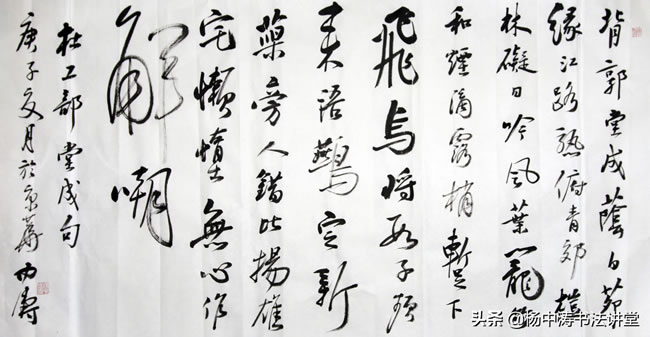 背郭堂成蔭白茅
緣江路熟俯青郊榿
林礙日吟風葉籠竹
和煙滴露梢暫下
飛烏將數子頻
來語鷰定新
巢旁人錯比揚雄
宅懶惰無心作
解嘲
杜工部堂成句
庚子夏月於京華中濤
头条 @杨中涛书法讲堂